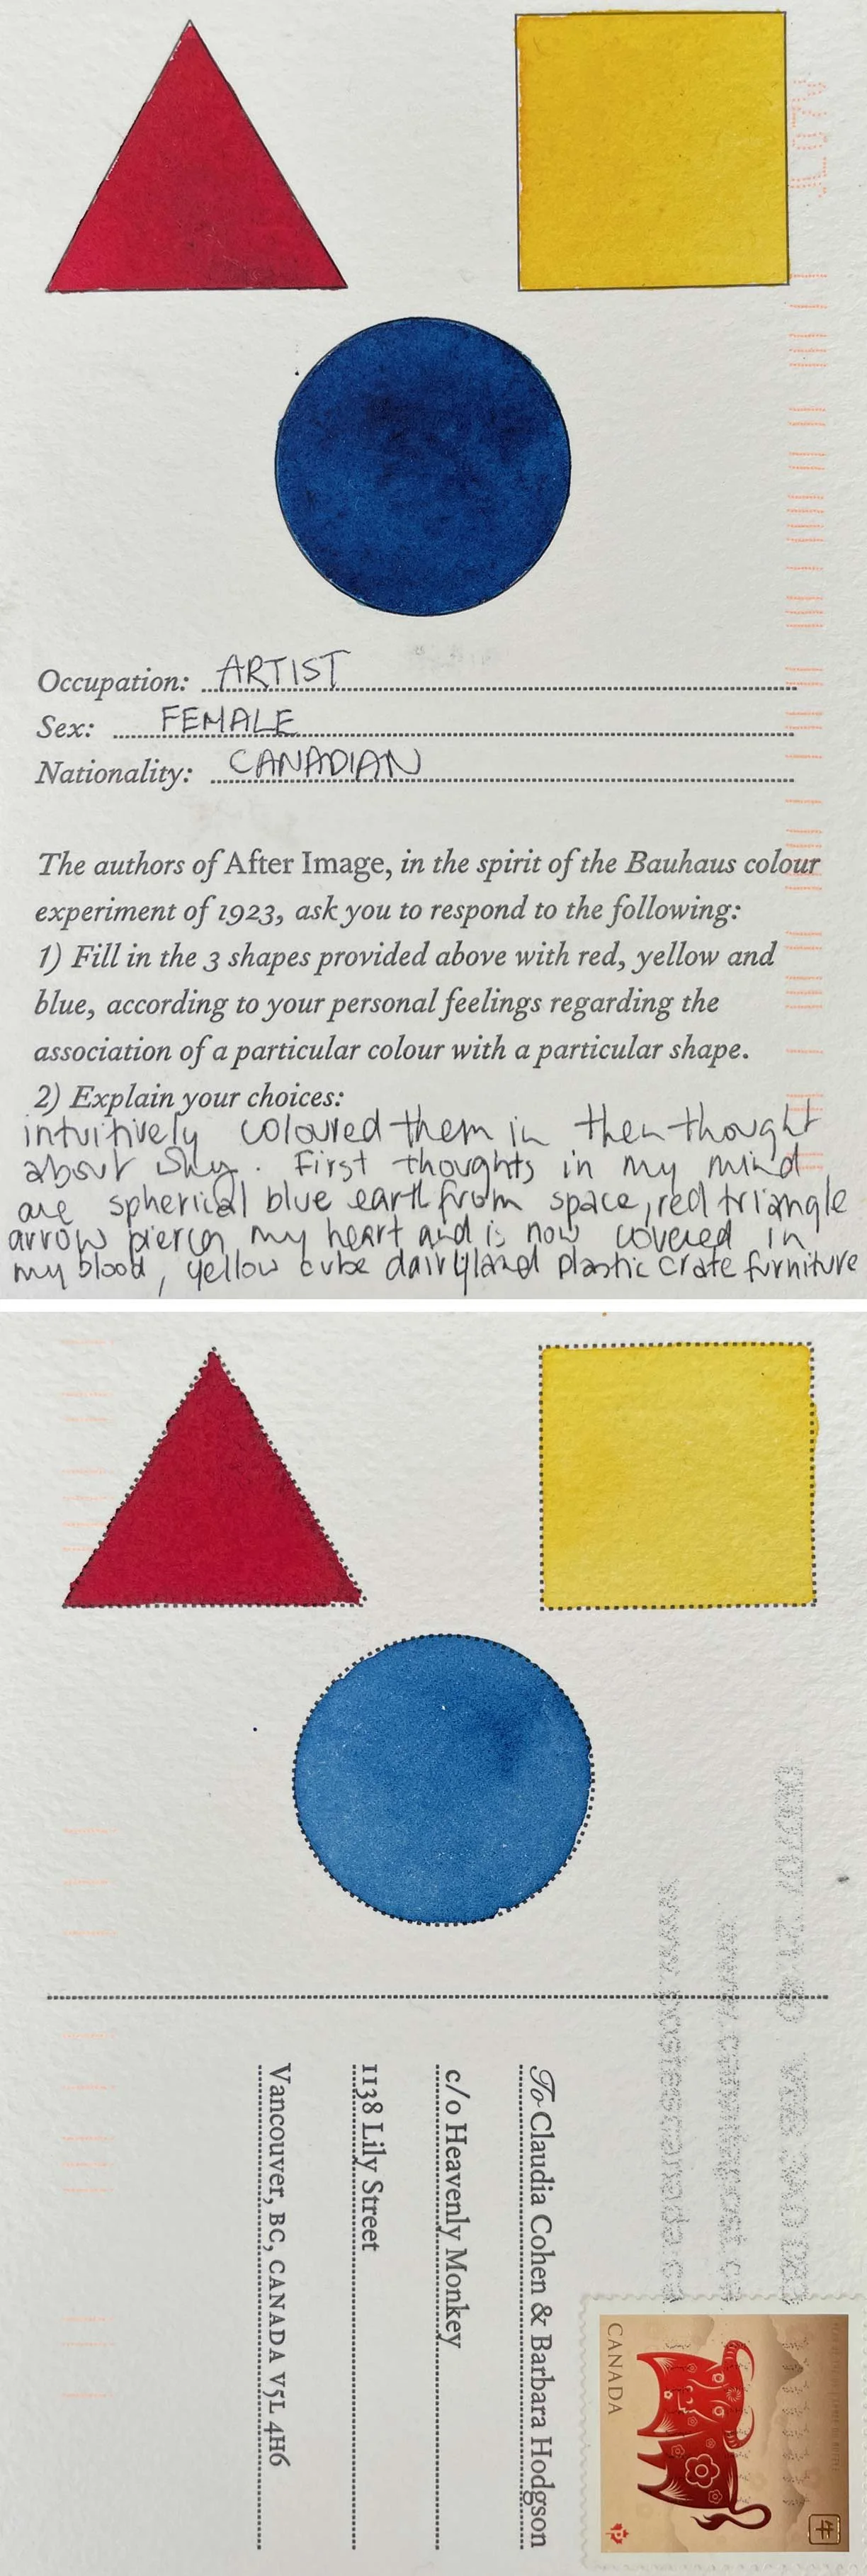 Occupation: ARTIST
Sex: FEMALE
Nationality: CANADIAN
The authors of After Image, in the spirit of the Bauhaus colour
experiment of 1923, ask you to respond to the following:
1) Fill in the 3 shapes provided above with red, yellow and
blue, according to your personal feelings regarding the
association of a particular colour with a particular shape.
2) Explain your choices:
intuitively coloured them in then thought
about why. First thoughts in my mind
are spherical blue earth from space, red triangle
arrow pierces my heart and is now covered in
my blood, yellow cube dairyland plastic crate furniture
To Claudia Cohen & Barbara Hodgson
c/o Heavenly Monkey
1138 Lily Street
Vancouver, BC, CANADA V5L 4H6
CANADA
牛
P
www.canadapost.ca
www.postescanada.ca